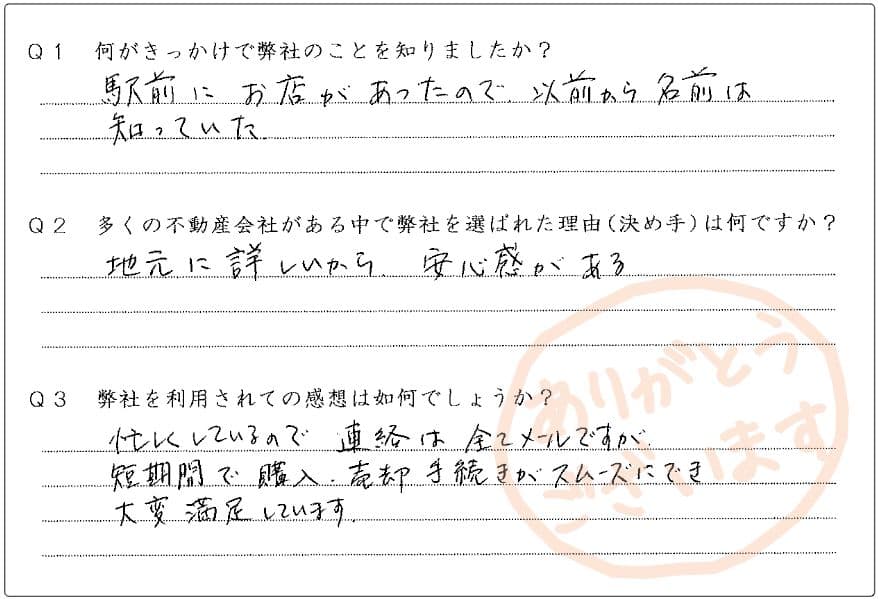 Q1 何がきっかけで弊社のことを知りましたか？
駅前に お店が あったので、以前から 名前は
知っていた。
Q2 多くの不動産会社がある中で弊社を選ばれた理由(決め手)は何ですか？
地元に 詳しいから、安心感が ある
Q3 弊社を利用されての感想は如何でしょうか？
忙しくしているので 連絡は 全てメールですが、
短期間で 購入、売却 手続きが スムーズにでき
大変 満足しています。
ありがとう
ございます